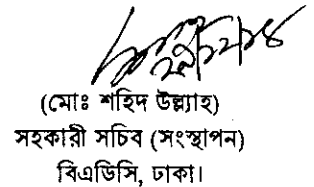 (মোঃ শহিদ উল্ল্যাহ)
সহকারী সচিব (সংস্থাপন)
বিএডিসি, ঢাকা।